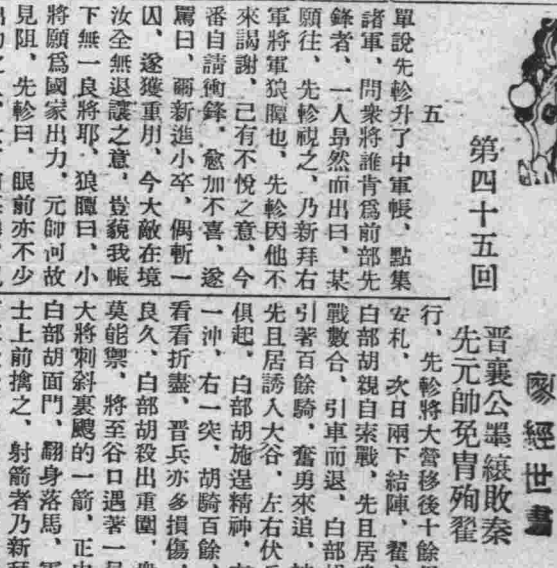 第四十五回
晉襄公墨縗敗秦
先元帥免冑殉翟
五
單說先軫升了中軍帳、點集
諸軍、問衆將誰肯爲前部先
鋒者、一人昻然而出曰、某
願往、先軫視之、乃新拜右
軍將軍狼瞫也、先軫因他不
來謁謝、已有不悅之意、今
番自請衝鋒、愈加不喜、遂
罵曰、爾新進小卒、偶斬一
囚、遂獲重用、今大敵在境
汝全無退讓之意、豈藐我帳
下無一良將耶、狼瞫曰、小
將願爲國家出力、元帥何故
見阻、先軫曰、眼前亦不少
行、先軫將大營移後十餘
安札、次日兩下結陣、翟
白部胡親自索戰、先且居
戰數合、引車而退、白部胡
引著百餘騎、奮勇來追、
先且居誘入大谷、左右伏兵
俱起、白部胡施逞精神、
一冲、右一突、胡騎百餘、
看看折盡、晉兵亦多損傷、
良久、白部胡殺出重圍、
莫能禦、將至谷口遇著一
大將刺斜裏颼的一箭、正中
白部胡面門、翻身落馬、軍
士上前擒之、射箭者乃新拜